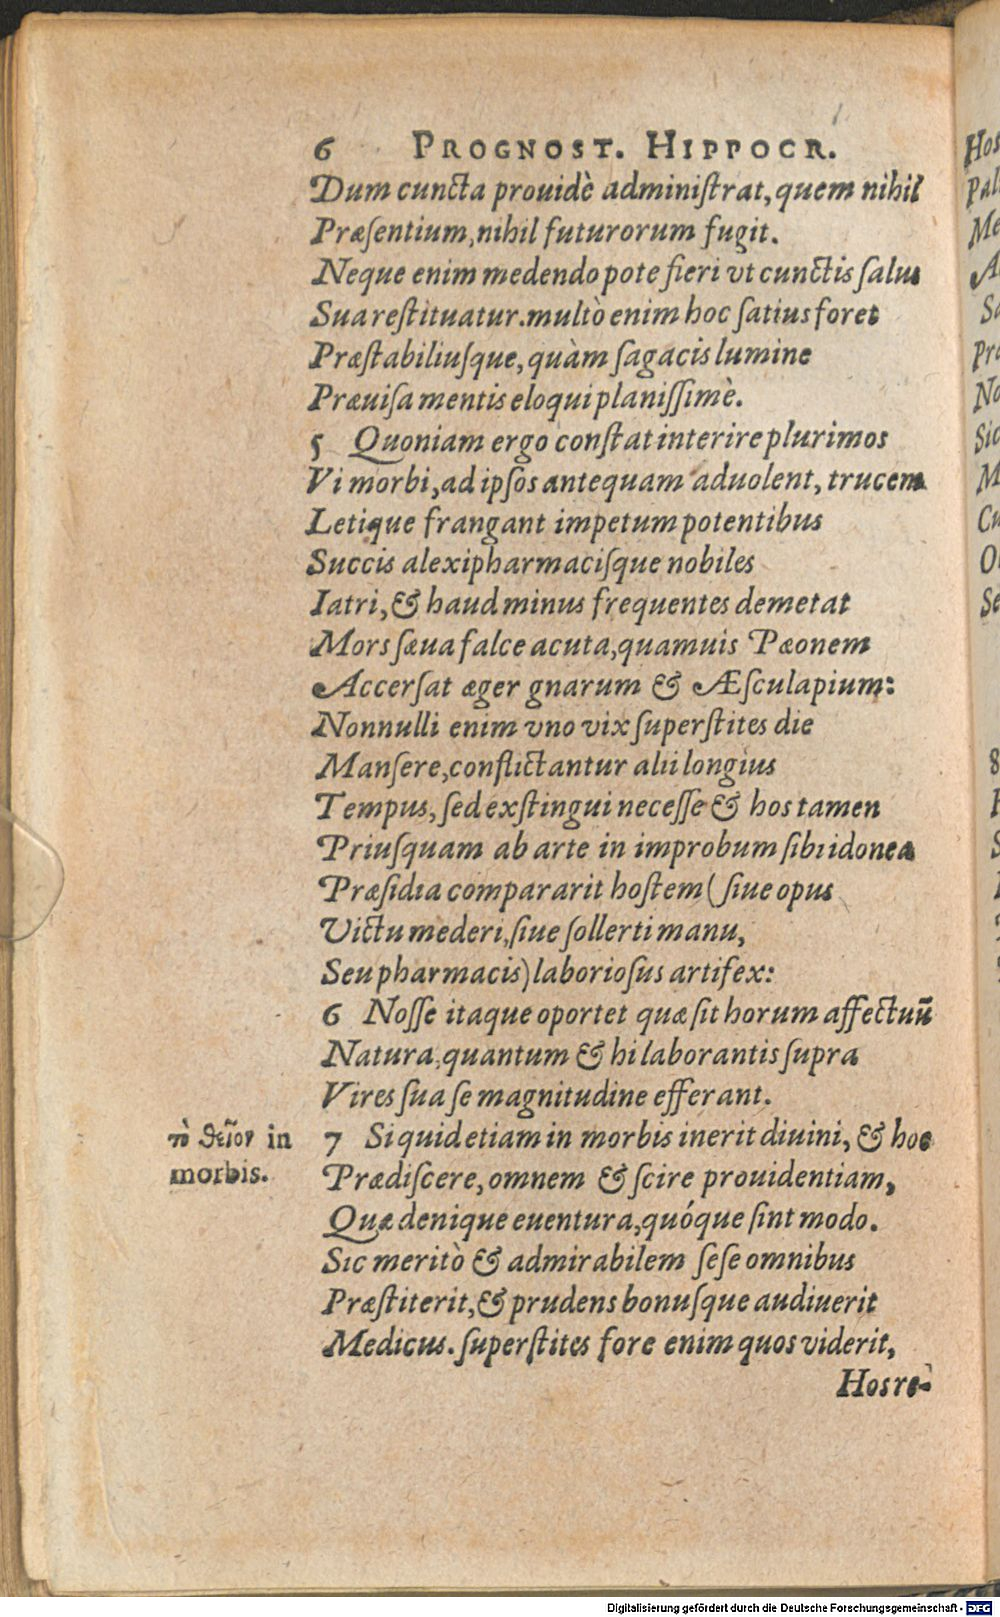 6 PROGNOST. HIPPOCR.
Dum cuncta prouidè adminiſtrat, quem nihil
Præſentium, nihil futurorum fugit.
Neque enim medendo pote fieri vt cunctis ſalus
Sua reſtituatur. multò enim hoc ſatius foret
Præſtabiliuſque, quàm ſagacis lumine
Præuiſa mentis eloqui planiſſimè.
5 Quoniam ergo conſtat interire plurimos
Vi morbi, ad ipſos antequam aduolent, trucem
Letique frangant impetum potentibus
Succis alexipharmaciſque nobiles
Iatri, & haud minus frequentes demetat
Mors ſæua falce acuta, quamuis Pæonem
Accerſat æger gnarum & Æſculapium:
Nonnulli enim vno vix ſuperſtites die
Manſere, conflictantur alii longius
Tempus, ſed exſtingui neceſſe & hos tamen
Priuſquam ab arte in improbum ſibi idonea
Præſidia compararit hoſtem (ſiue opus
Victu mederi, ſiue ſollerti manu,
Seu pharmacis) laborioſus artifex:
6 Noſſe itaque oportet quæ ſit horum affectuũ
Natura, quantum & hi laborantis ſupra
Vires ſua ſe magnitudine efferant.
τὸ θεῖον in
morbis.
7 Si quid etiam in morbis inerit diuini, & hoc
Prædiſcere, omnem & ſcire prouidentiam,
Quæ denique euentura, quóque ſint modo.
Sic meritò & admirabilem ſeſe omnibus
Præſtiterit, & prudens bonuſque audiuerit
Medicus. ſuperſtites fore enim quos viderit,
Hos re-
Hos
Pal
Me
A
Sa
Pra
No
Sic
M
Cu
O
Se
8
Digitalisierung gefördert durch die Deutsche Forschungsgemeinschaft - DFG